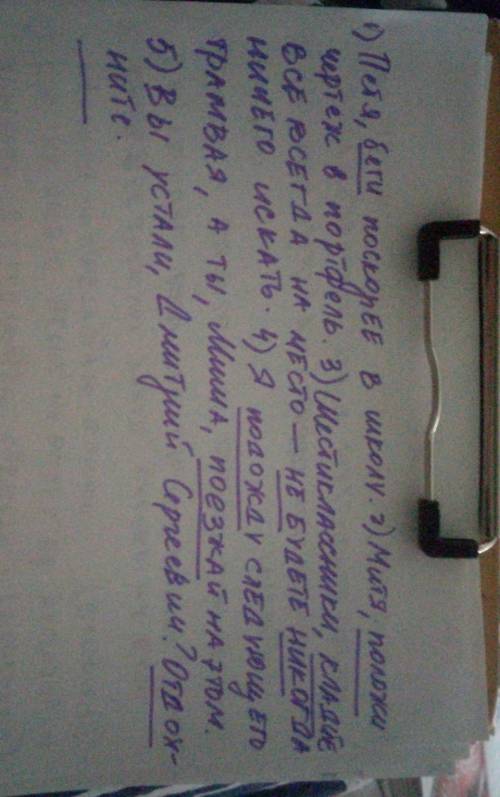 1) Петя, беги поскорее в школу. 2) Митя, положи
чертеж в портфель. 3) Шестиклассники, кладите
все всегда на место — не будете никогда
ничего искать. 4) Я подожду следующего
трамвая, а ты, Миша, поезжай на этом.
5) Вы устали, Дмитрий Сергеевич? Отдох-
ните.